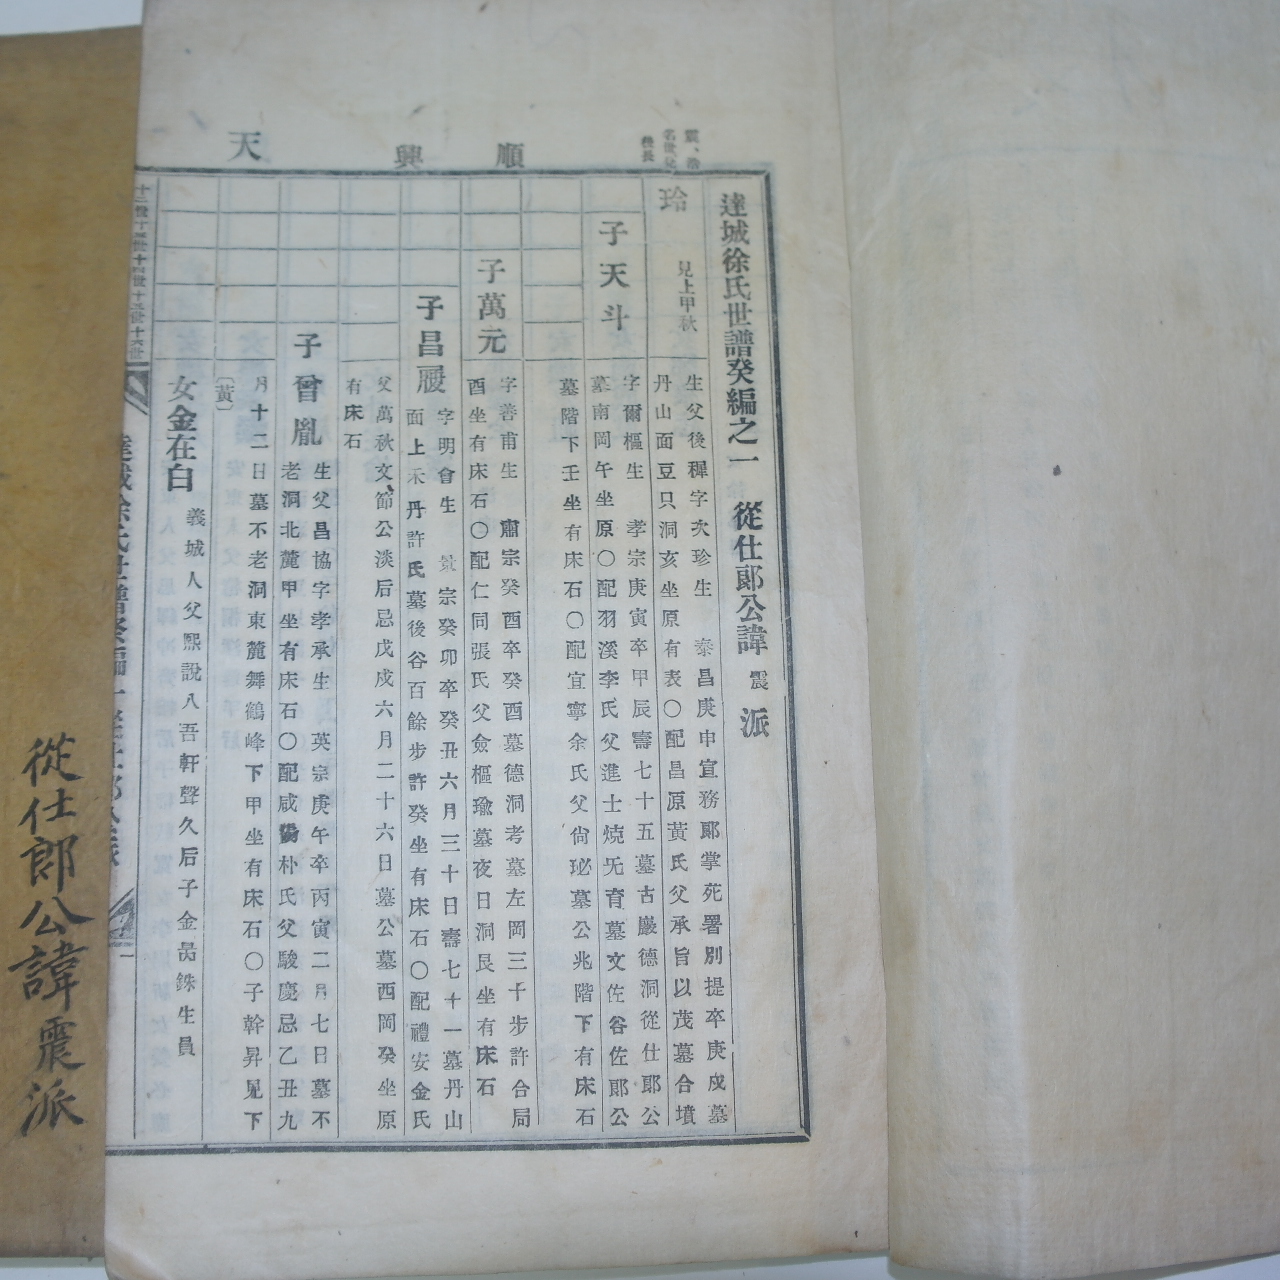 順
興
天
達城徐氏世譜癸編之一 從仕郞公諱震派
玲
見上甲秋
生父後穉字次珍生 泰昌庚申宣務郞掌苑署別提卒庚戌墓
丹山面豆只洞亥坐原有表〇配昌原黃氏父承旨以茂墓合墳
子天斗
字爾樞生 孝宗庚寅卒甲辰壽七十五墓古巖德洞從仕郞公
墓南岡午坐原〇配羽溪李氏父進士烷无育墓文佐谷佐郞公
墓階下壬坐有床石〇配宜寧余氏父尙珌墓公兆階下有床石
子萬元
字善甫生 肅宗癸酉卒癸酉墓德洞考墓左岡三千步許合局
酉坐有床石〇配仁同張氏父僉樞瑜墓夜日洞艮坐有床石
子昌殷
字明會生 景宗癸卯卒癸丑六月三十日壽七十一墓丹山
面上禾丹許氏墓後谷百餘步許癸坐有床石〇配禮安金氏
父萬秋文節公淡后忌戊戌六月二十六日墓公墓西岡癸坐原
有床石
子曾胤
生父昌協字孝承生 英宗庚午卒丙寅二月七日墓不
老洞北麓甲坐有床石〇配咸陽朴氏父駿慶忌乙丑九
月十二日墓不老洞東麓舞鶴峰下甲坐有床石〇子幹昇見下
（黃）
女金在白
義城人父熙說八吾軒聲久后子金昺銖生員
十二世十三世十四世十五世十六世
達城徐氏世譜癸編一 從仕郞公派
一
從仕郎公諱震派